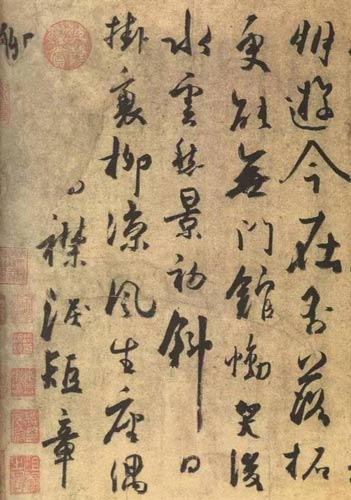 朋遊今在否落拓
更能無門館慟哭後
水雲愁景初斜日
掛衰柳涼風生座隅
襟淚短章